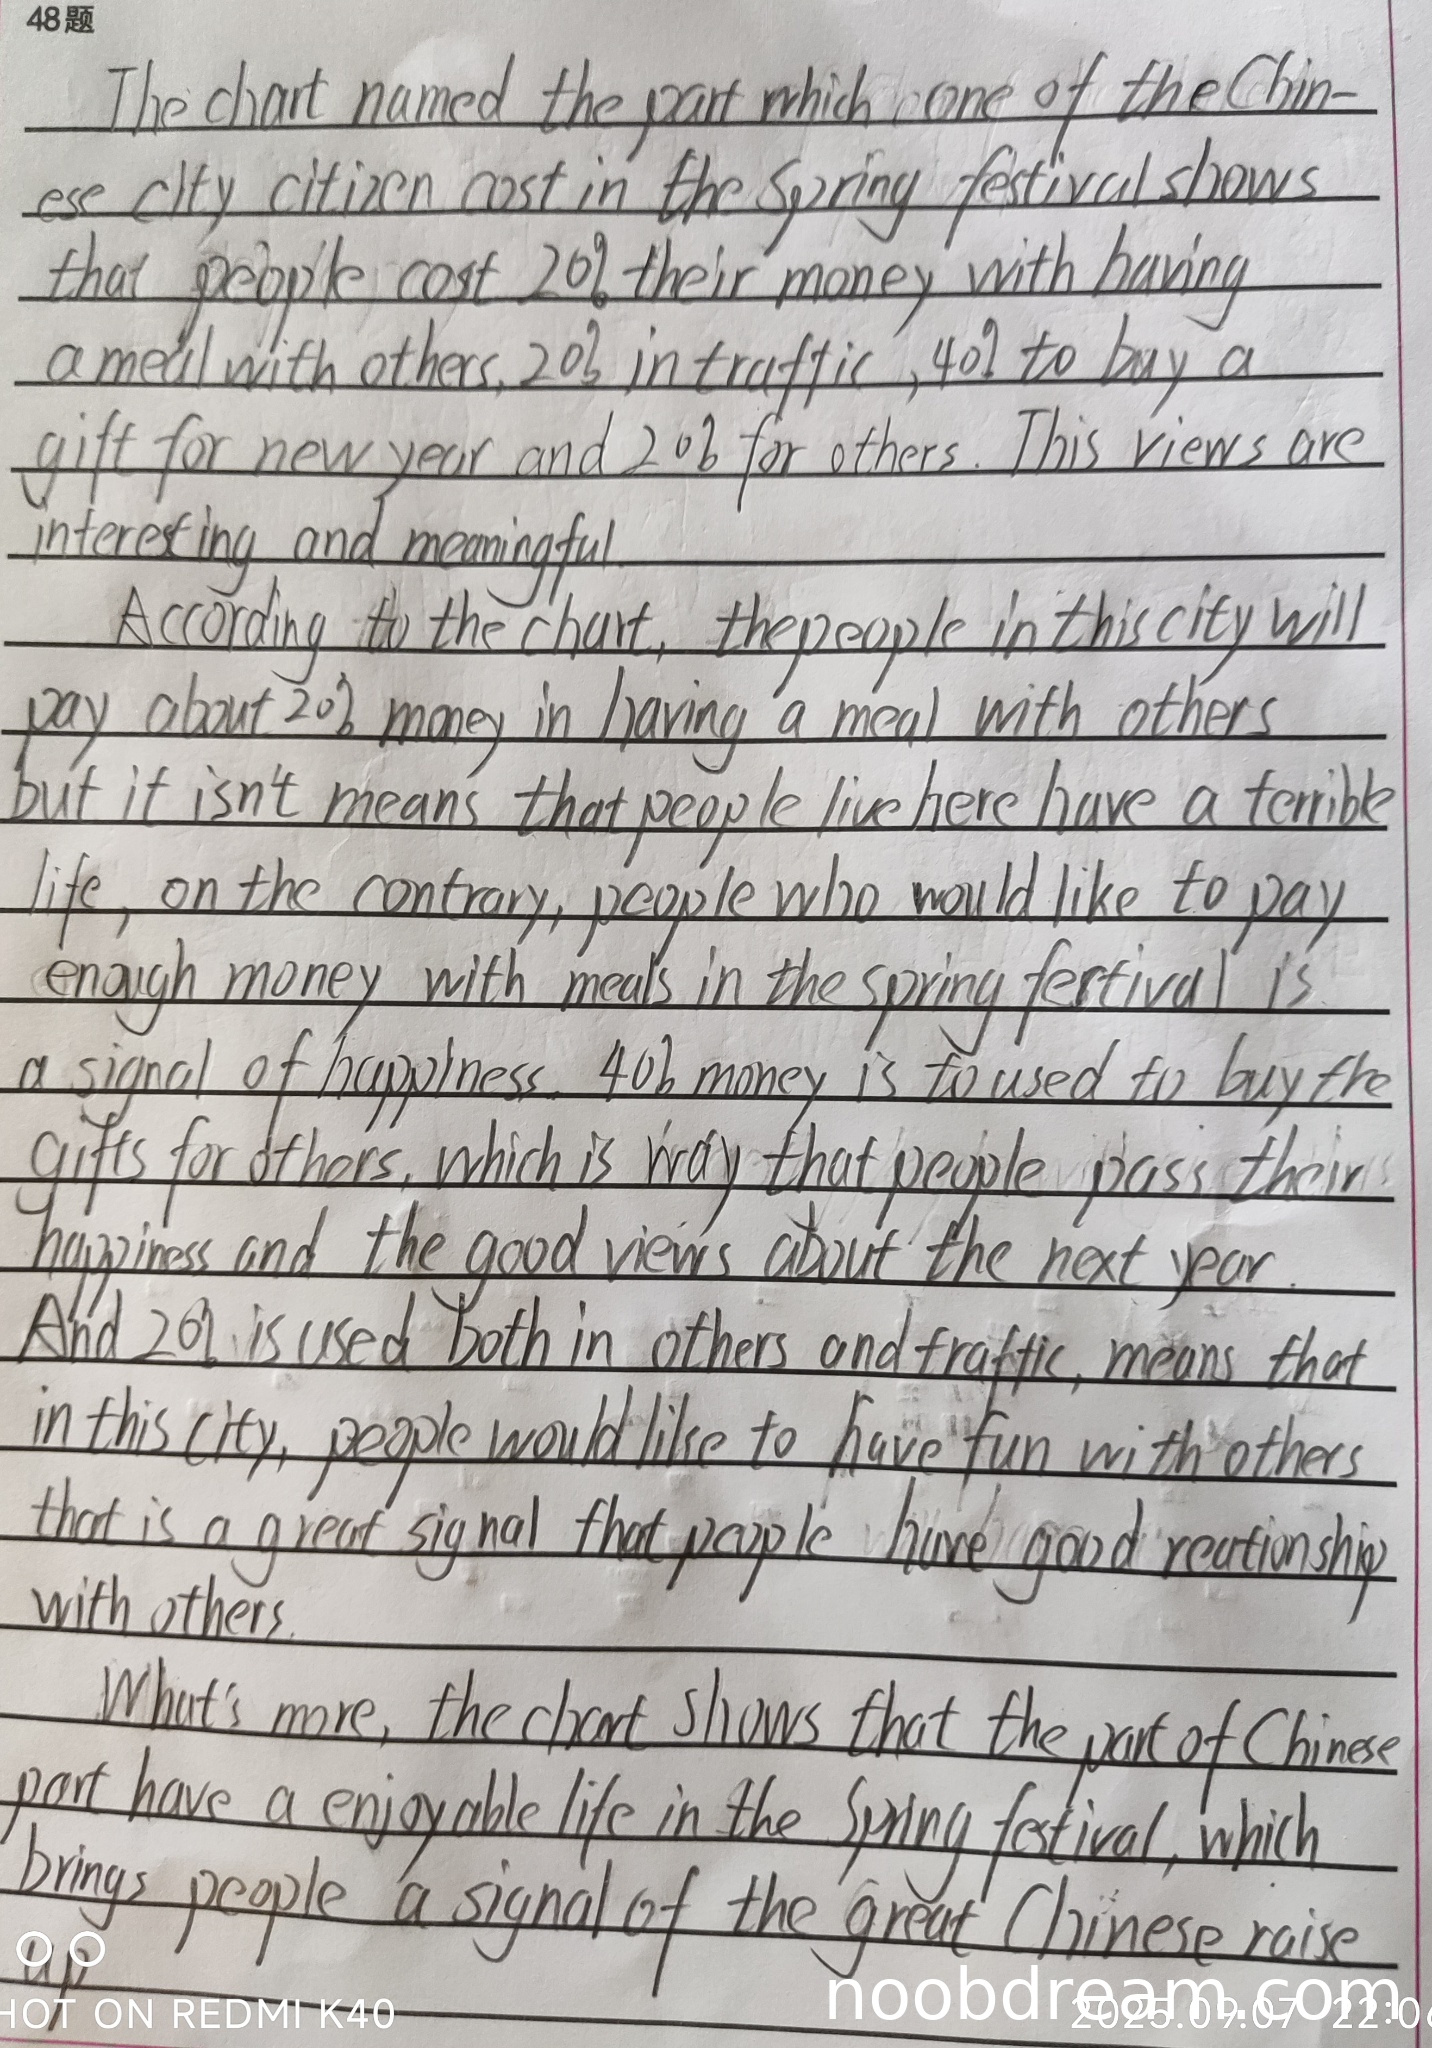 48题
The chart named the part which one of the Chin-
ese city citizen cost in the Spring festival shows
that people cost 20% their money with having
a meal with others, 20% in traffic, 40% to buy a
gift for new year and 20% for others. This views are
interesting and meaningful.
According to the chart, the people in this city will
pay about 20% money in having a meal with others
but it isn't means that people live here have a terrible
life, on the contrary, people who would like to pay
enough money with meals in the spring fertival is
a signal of happiness. 40% money is to used to buy the
gifts for others, which is way that people pass their
happiness and the good views about the next year.
And 20% is used both in others and traffic, means that
in this city, people would like to have fun with others
that is a great signal that people have good reationship
with others.
What's more, the chart shows that the part of Chinese
part have a enjoyable life in the Spring festival, which
brings people a signal of the great Chinese raise
up
SHOT ON REDMI K40
noobdream.com
2025.09.07 22:06